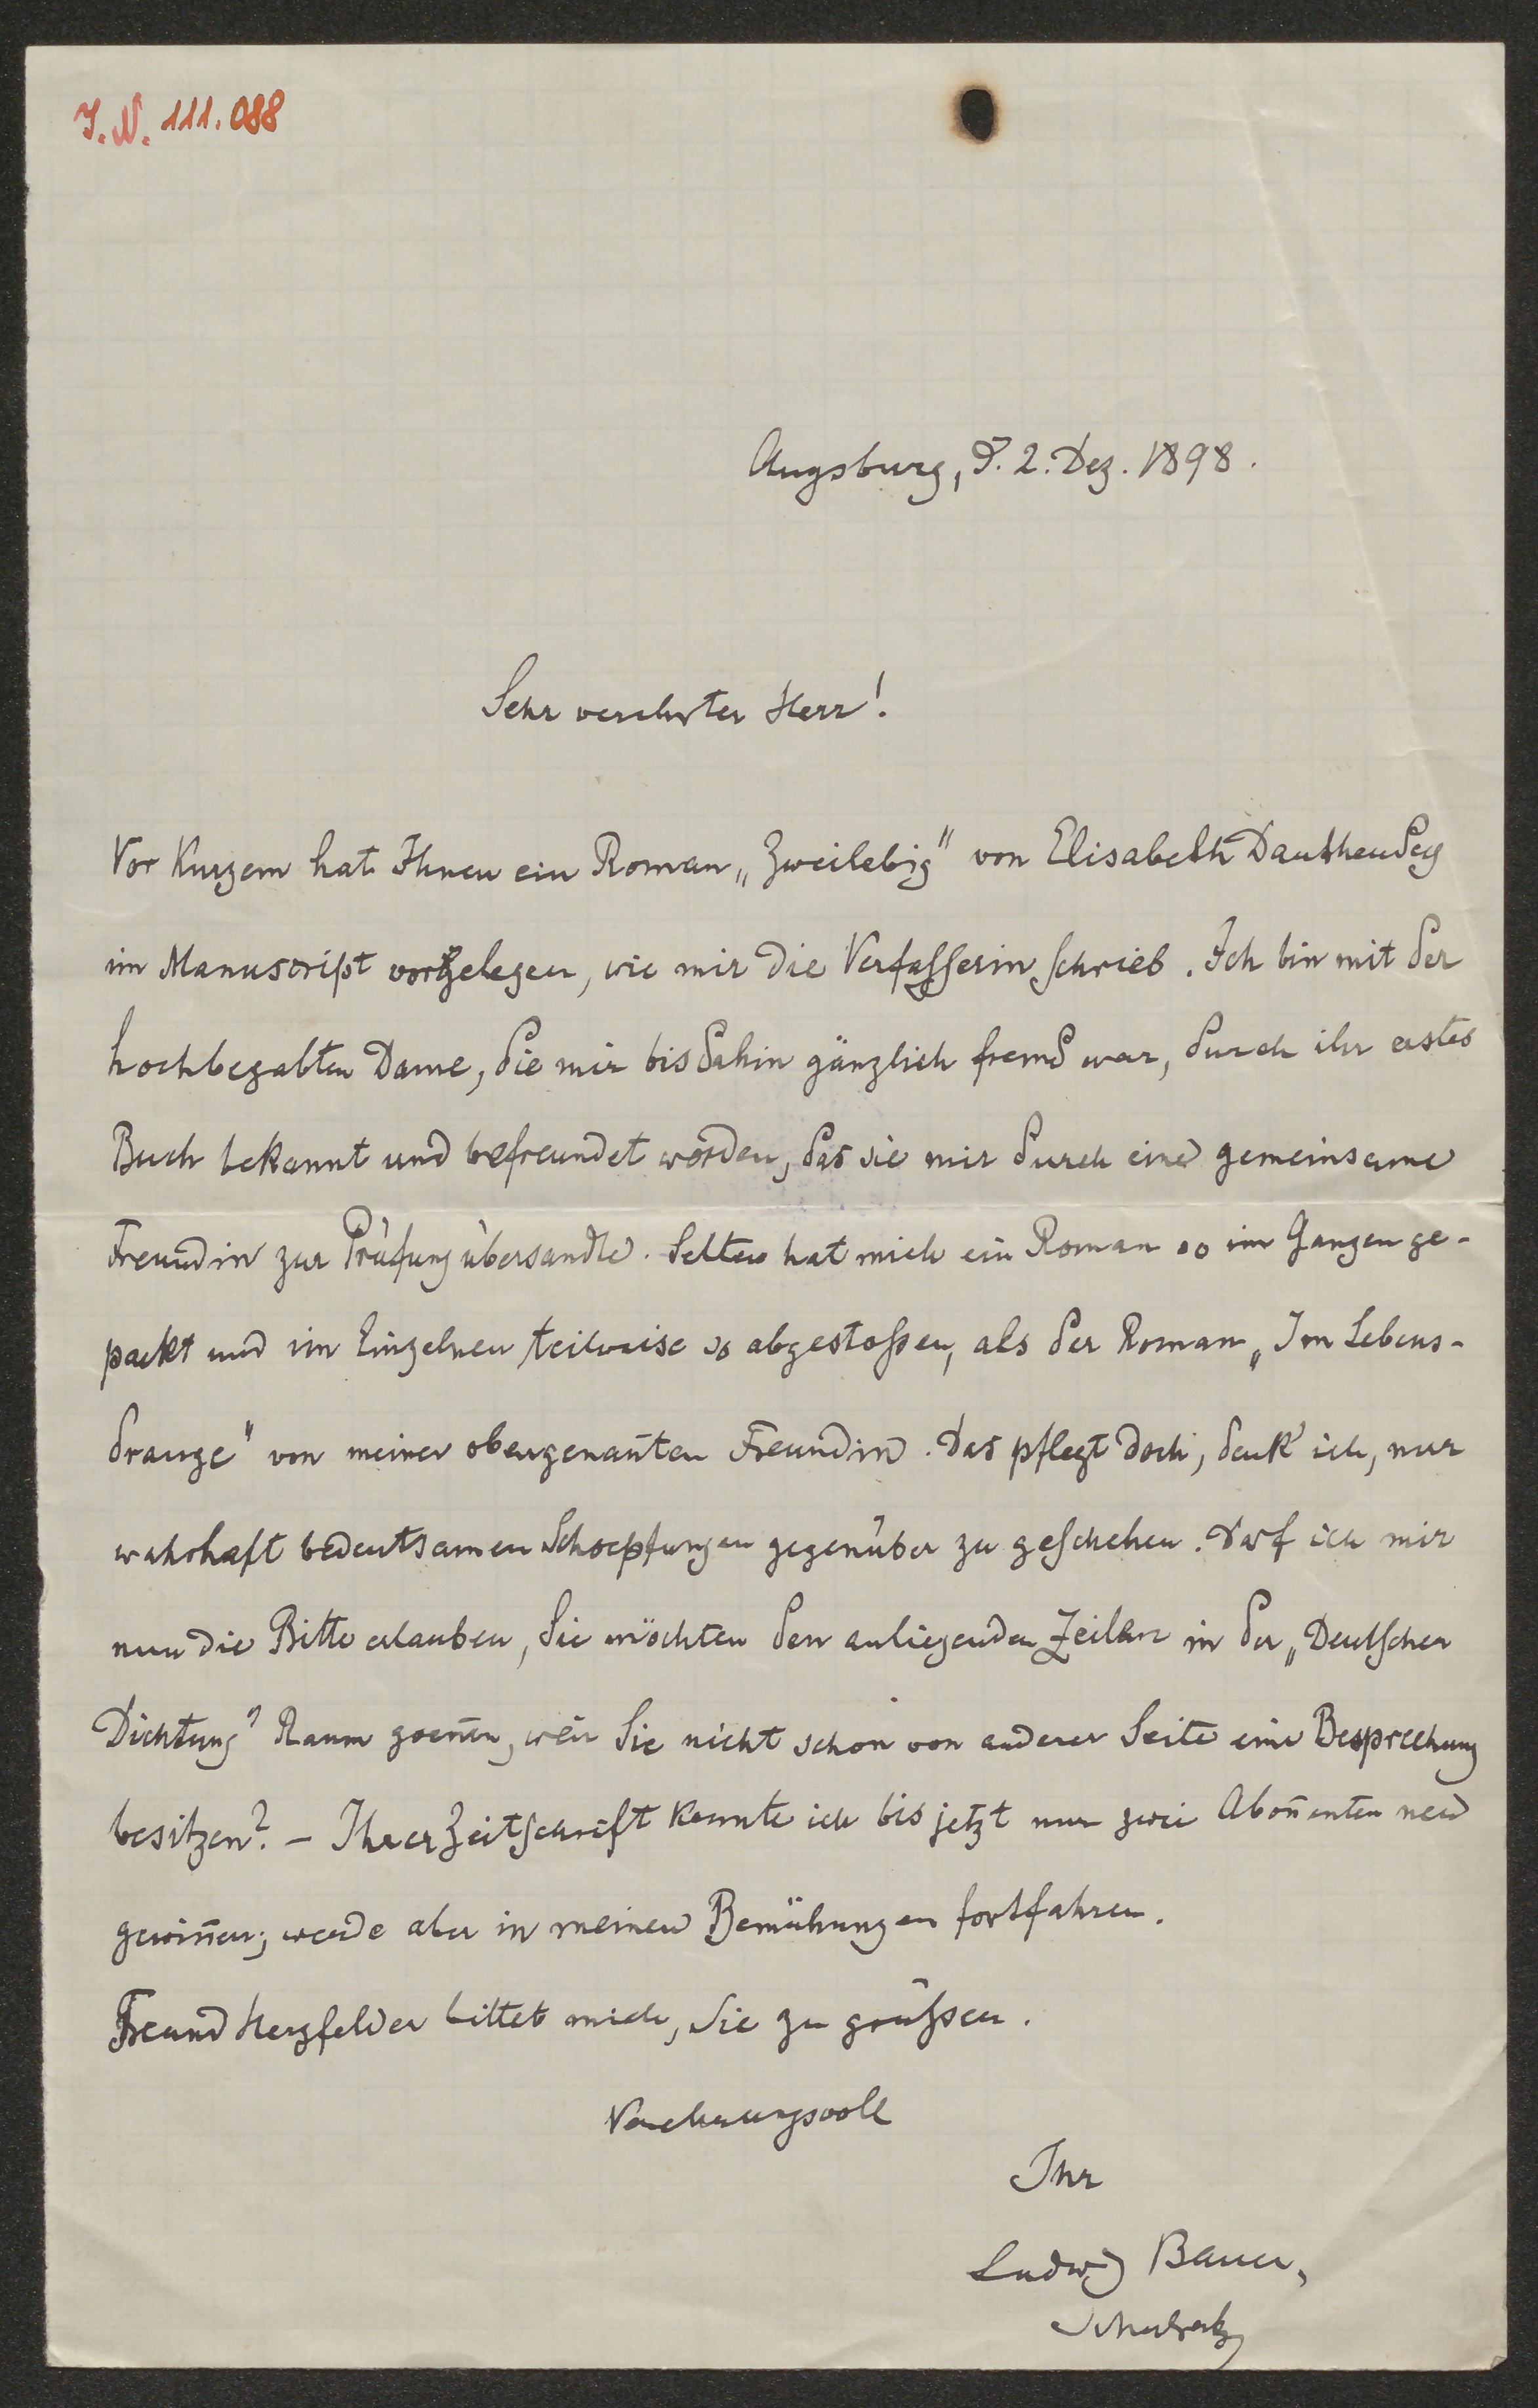 J. N. 111.088
Augsburg, d. 2. Dez. 1898.
Sehr verehrter Herr!
Vor Kurzem hat Ihnen ein Roman „Zweilebig" von Elisabeth Dauthendey
im Manuscript vorgelegen, wie mir die Verfasserin schrieb. Ich bin mit der
hochbegabten Dame, die mir bis dahin gänzlich fremd war, durch ihr erstes
Buch bekannt und befreundet worden, das sie mir durch eine gemeinsame
Freundin zur Prüfung übersandte. Selten hat mich ein Roman so im Ganzen ge-
packt und im Einzelnen teilweise so abgestoßen, als der Roman „Im Lebens-
drange" von meiner obengenan̄ten Freundin. Das pflegt doch, denk' ich, nur
wahrhaft bedeutsamen Schoepfungen gegenüber zu geschehen. Darf ich mir
nun die Bitte erlauben, Sie möchten den anliegenden Zeilen in der „Deutschen
Dichtung" Raum goen̄en, wen̄ Sie nicht schon von anderer Seite eine Besprechung
besitzen? – Ihrer Zeitschrift konnte ich bis jetzt nur zwei Abon̄enten neu
gewin̄en; werde aber in meinen Bemühungen fortfahren.
Freund Herzfelder bittet mich, Sie zu grüßen.
Verehrungsvoll
Ihr
Ludwig Bauer,
Schulrat